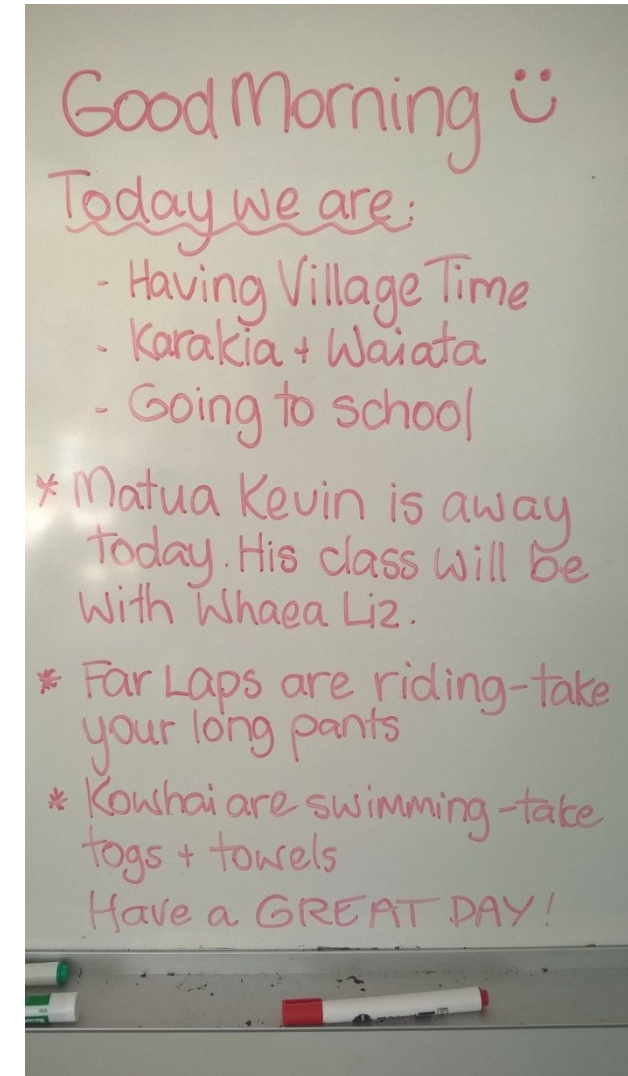 Good Morning
Today we are:
- Having Village Time
- Karakia + Waiata
- Going to school
* Matua Kevin is away
today. His class will be
with Whaea Liz.
* Far Laps are riding-take
your long pants
* Kowhai are swimming-take
togs + towels
Have a GREAT DAY!